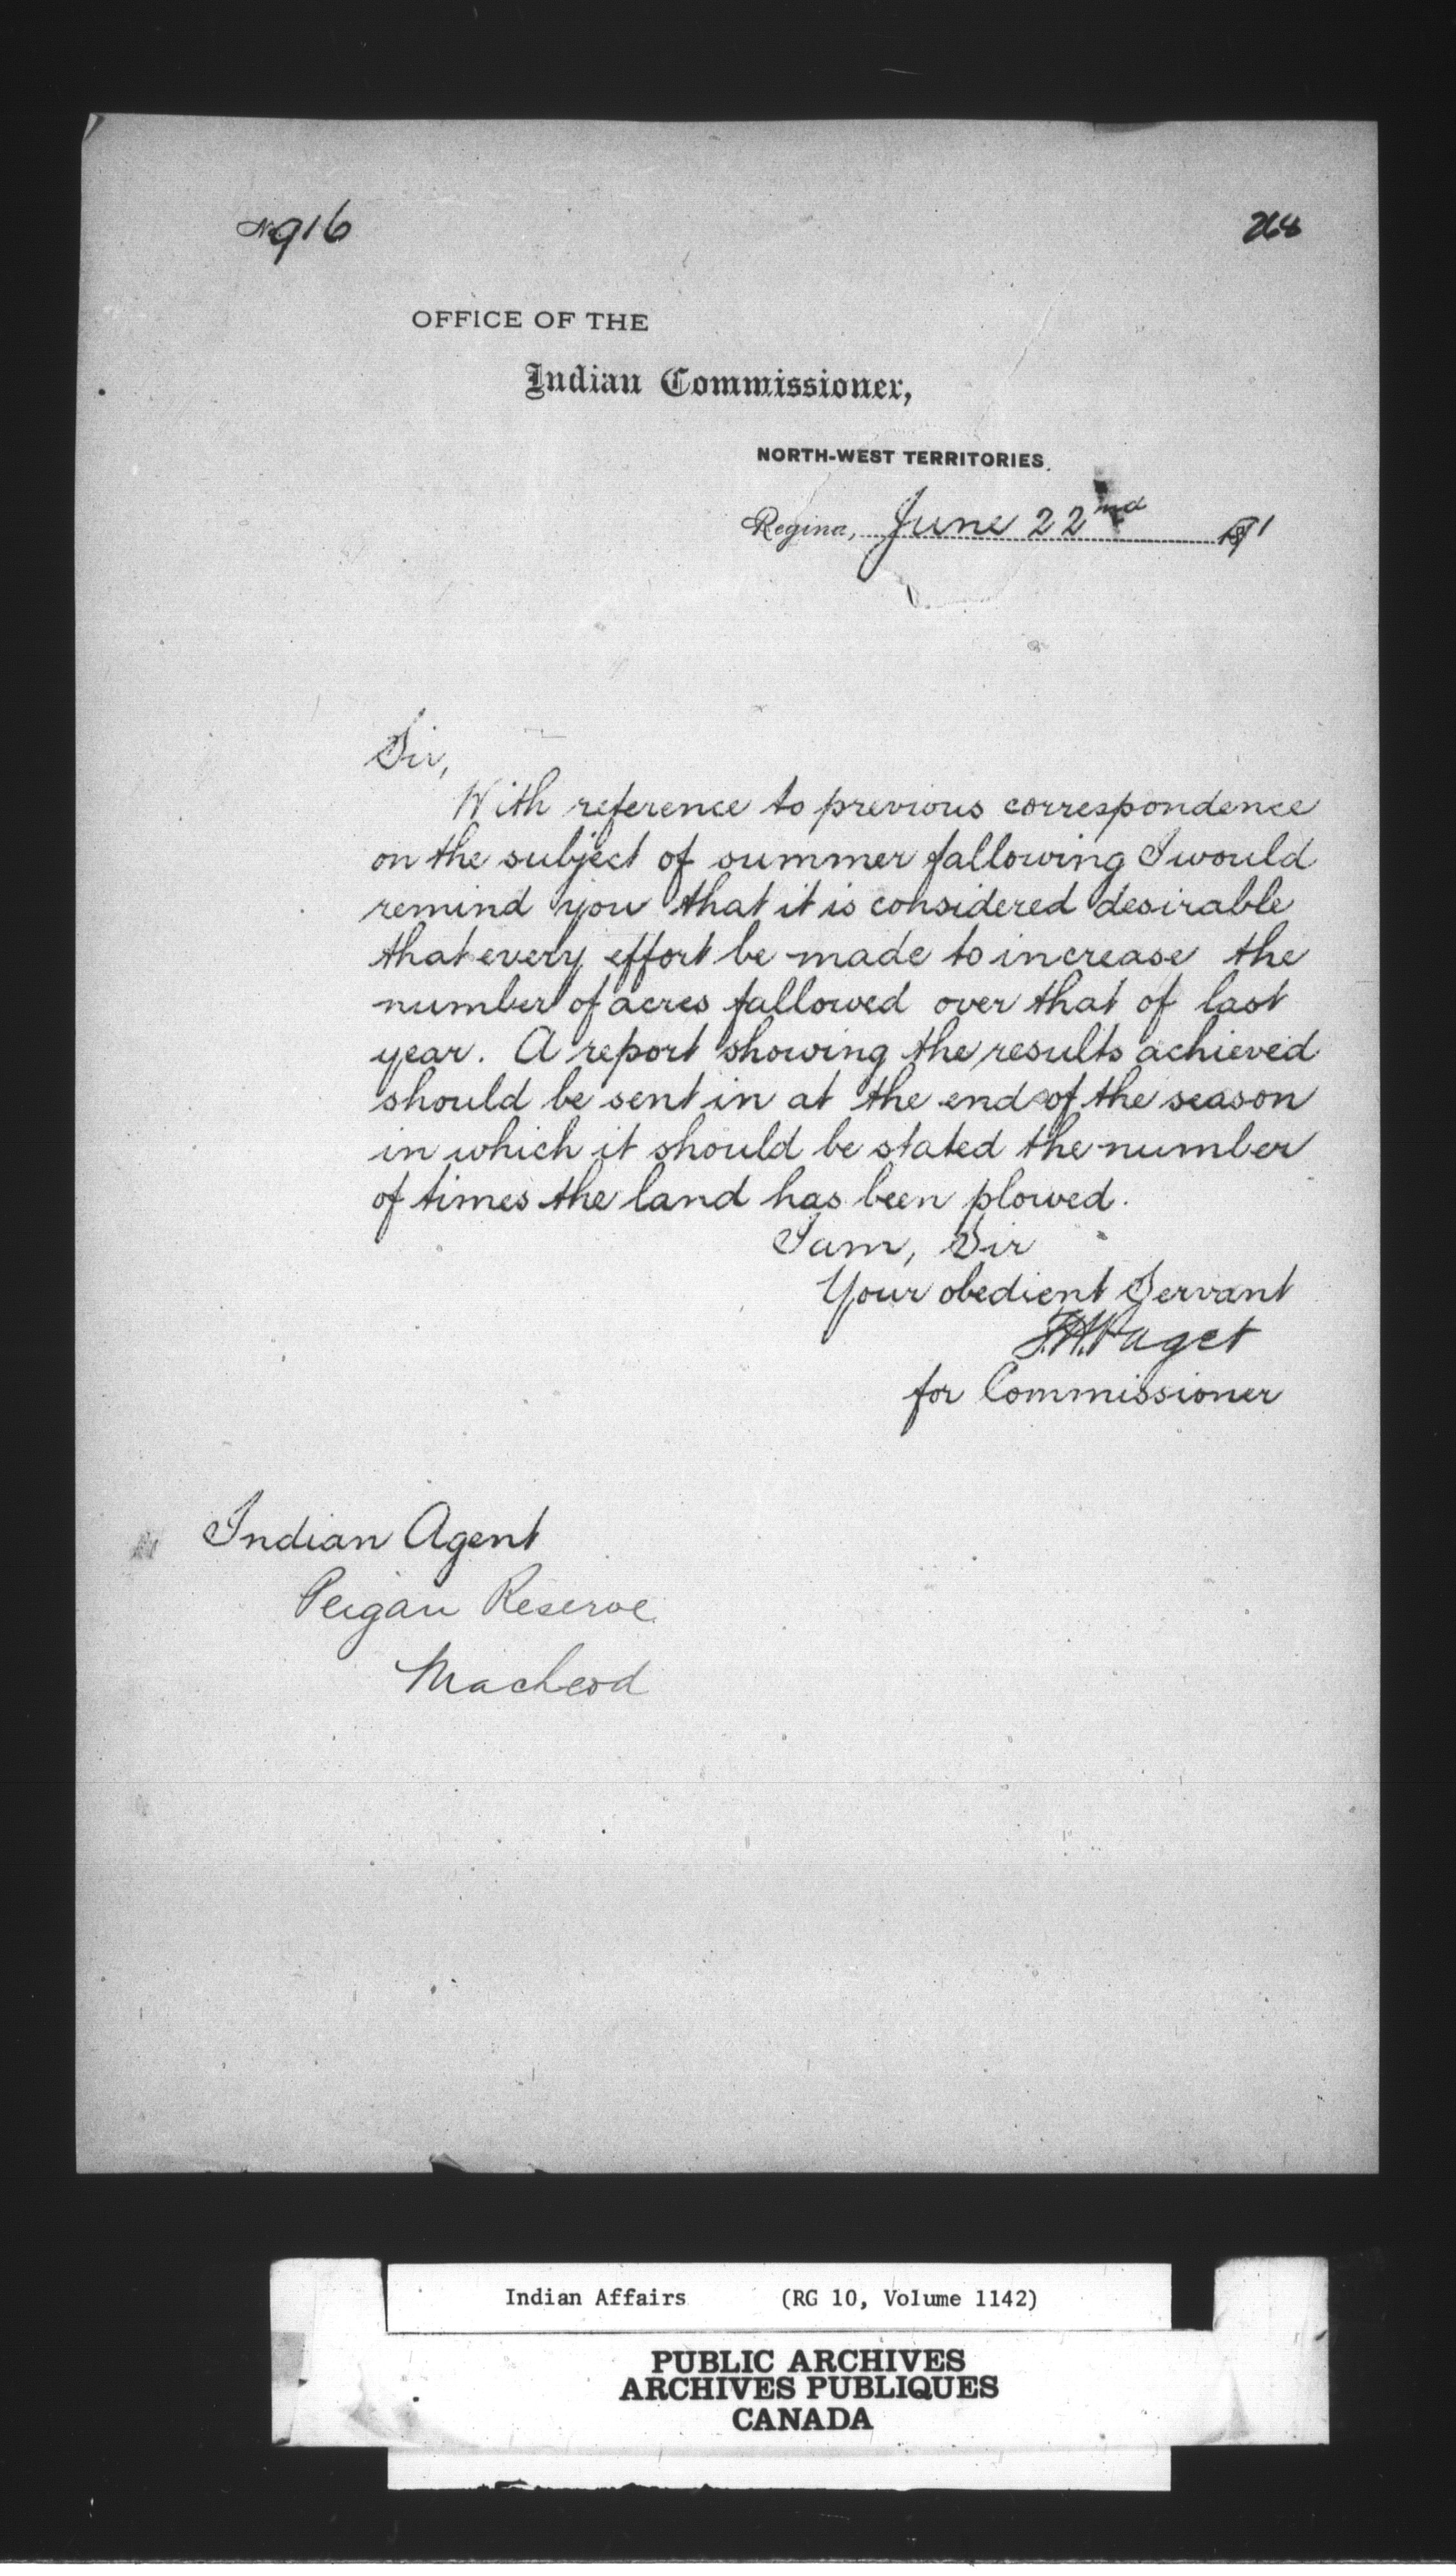 No 916
268
OFFICE OF THE
Indian Commissioner,
NORTH-WEST TERRITORIES.
Regina, June 22nd 1891
Sir,
With reference to previous correspondence
on the subject of summer fallowing I would
remind you that it is considered desirable
that every effort be made to increase the
number of acres fallowed over that of last
year. A report showing the results achieved
should be sent in at the end of the season
in which it should be stated the number
of times the land has been plowed.
I am, Sir
Your obedient Servant
F.H. Paget
for Commissioner
Indian Agent
Peigan Reserve
Macleod
Indian Affairs (RG 10, Volume 1142)
PUBLIC ARCHIVES
ARCHIVES PUBLIQUES
CANADA